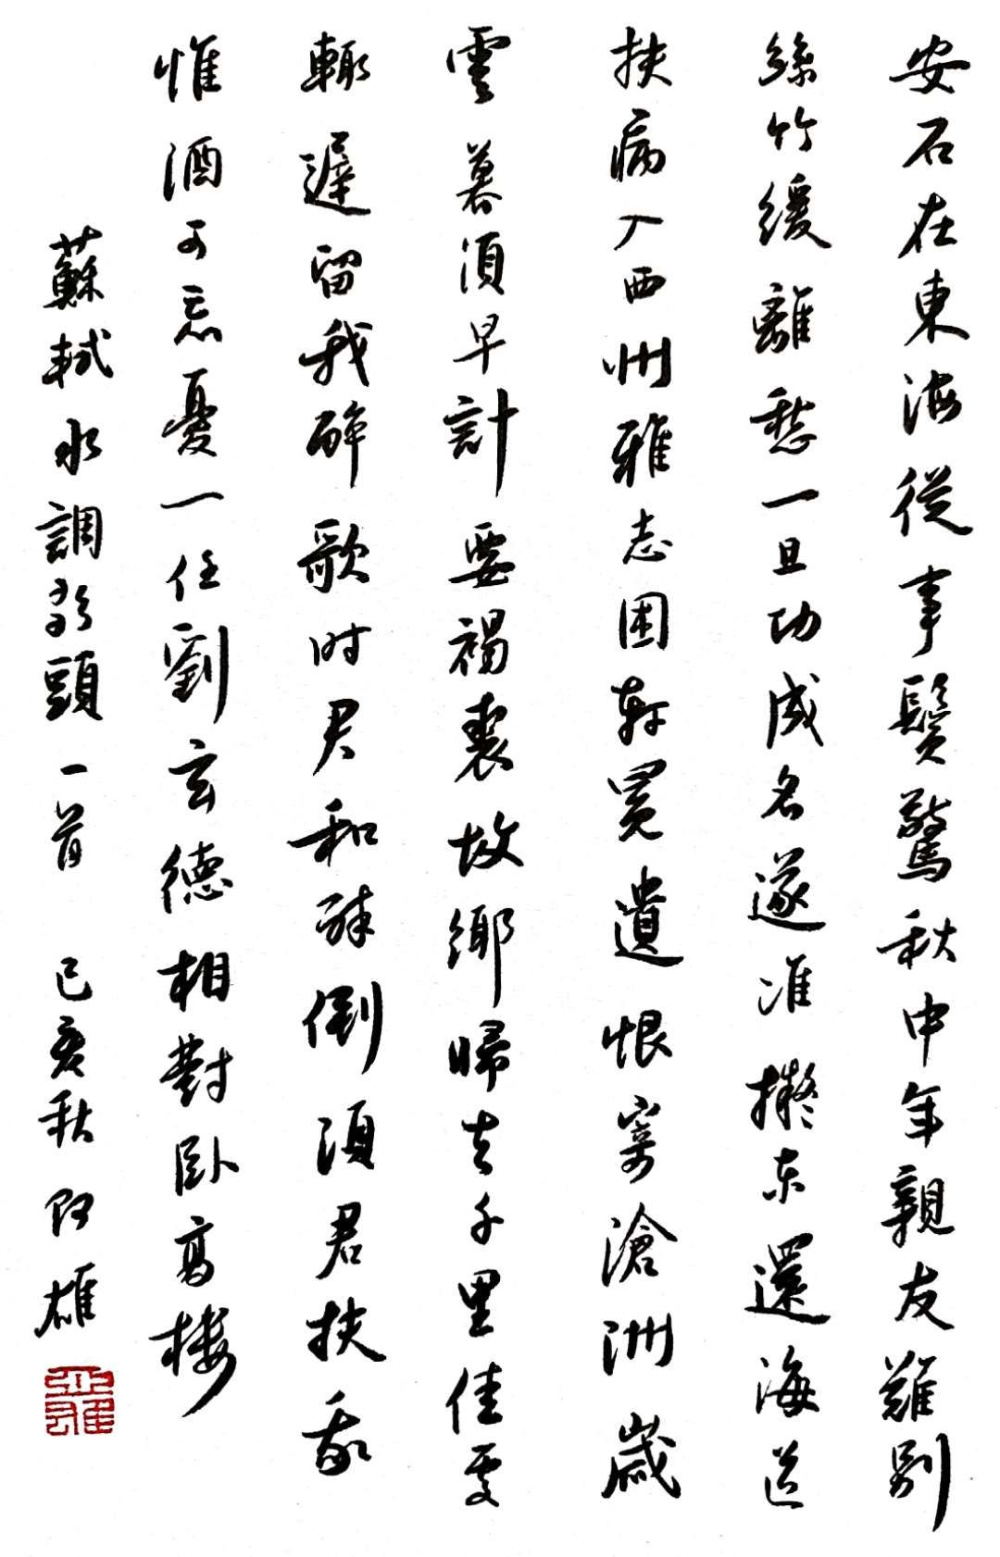 安石在東海從事鬢驚秋中年親友難別
絲竹緩離愁一旦功成名遂准擬东還海道
扶病入西州雅志困軒冕遺恨寄滄洲歲
雲暮須早計要褐裘故鄉歸去千里佳處
輒遲留我醉歌时君和醉倒須君扶我
惟酒可忘憂一任劉玄德相對卧高樓
蘇軾水調歌頭一首 己亥秋 阿雄